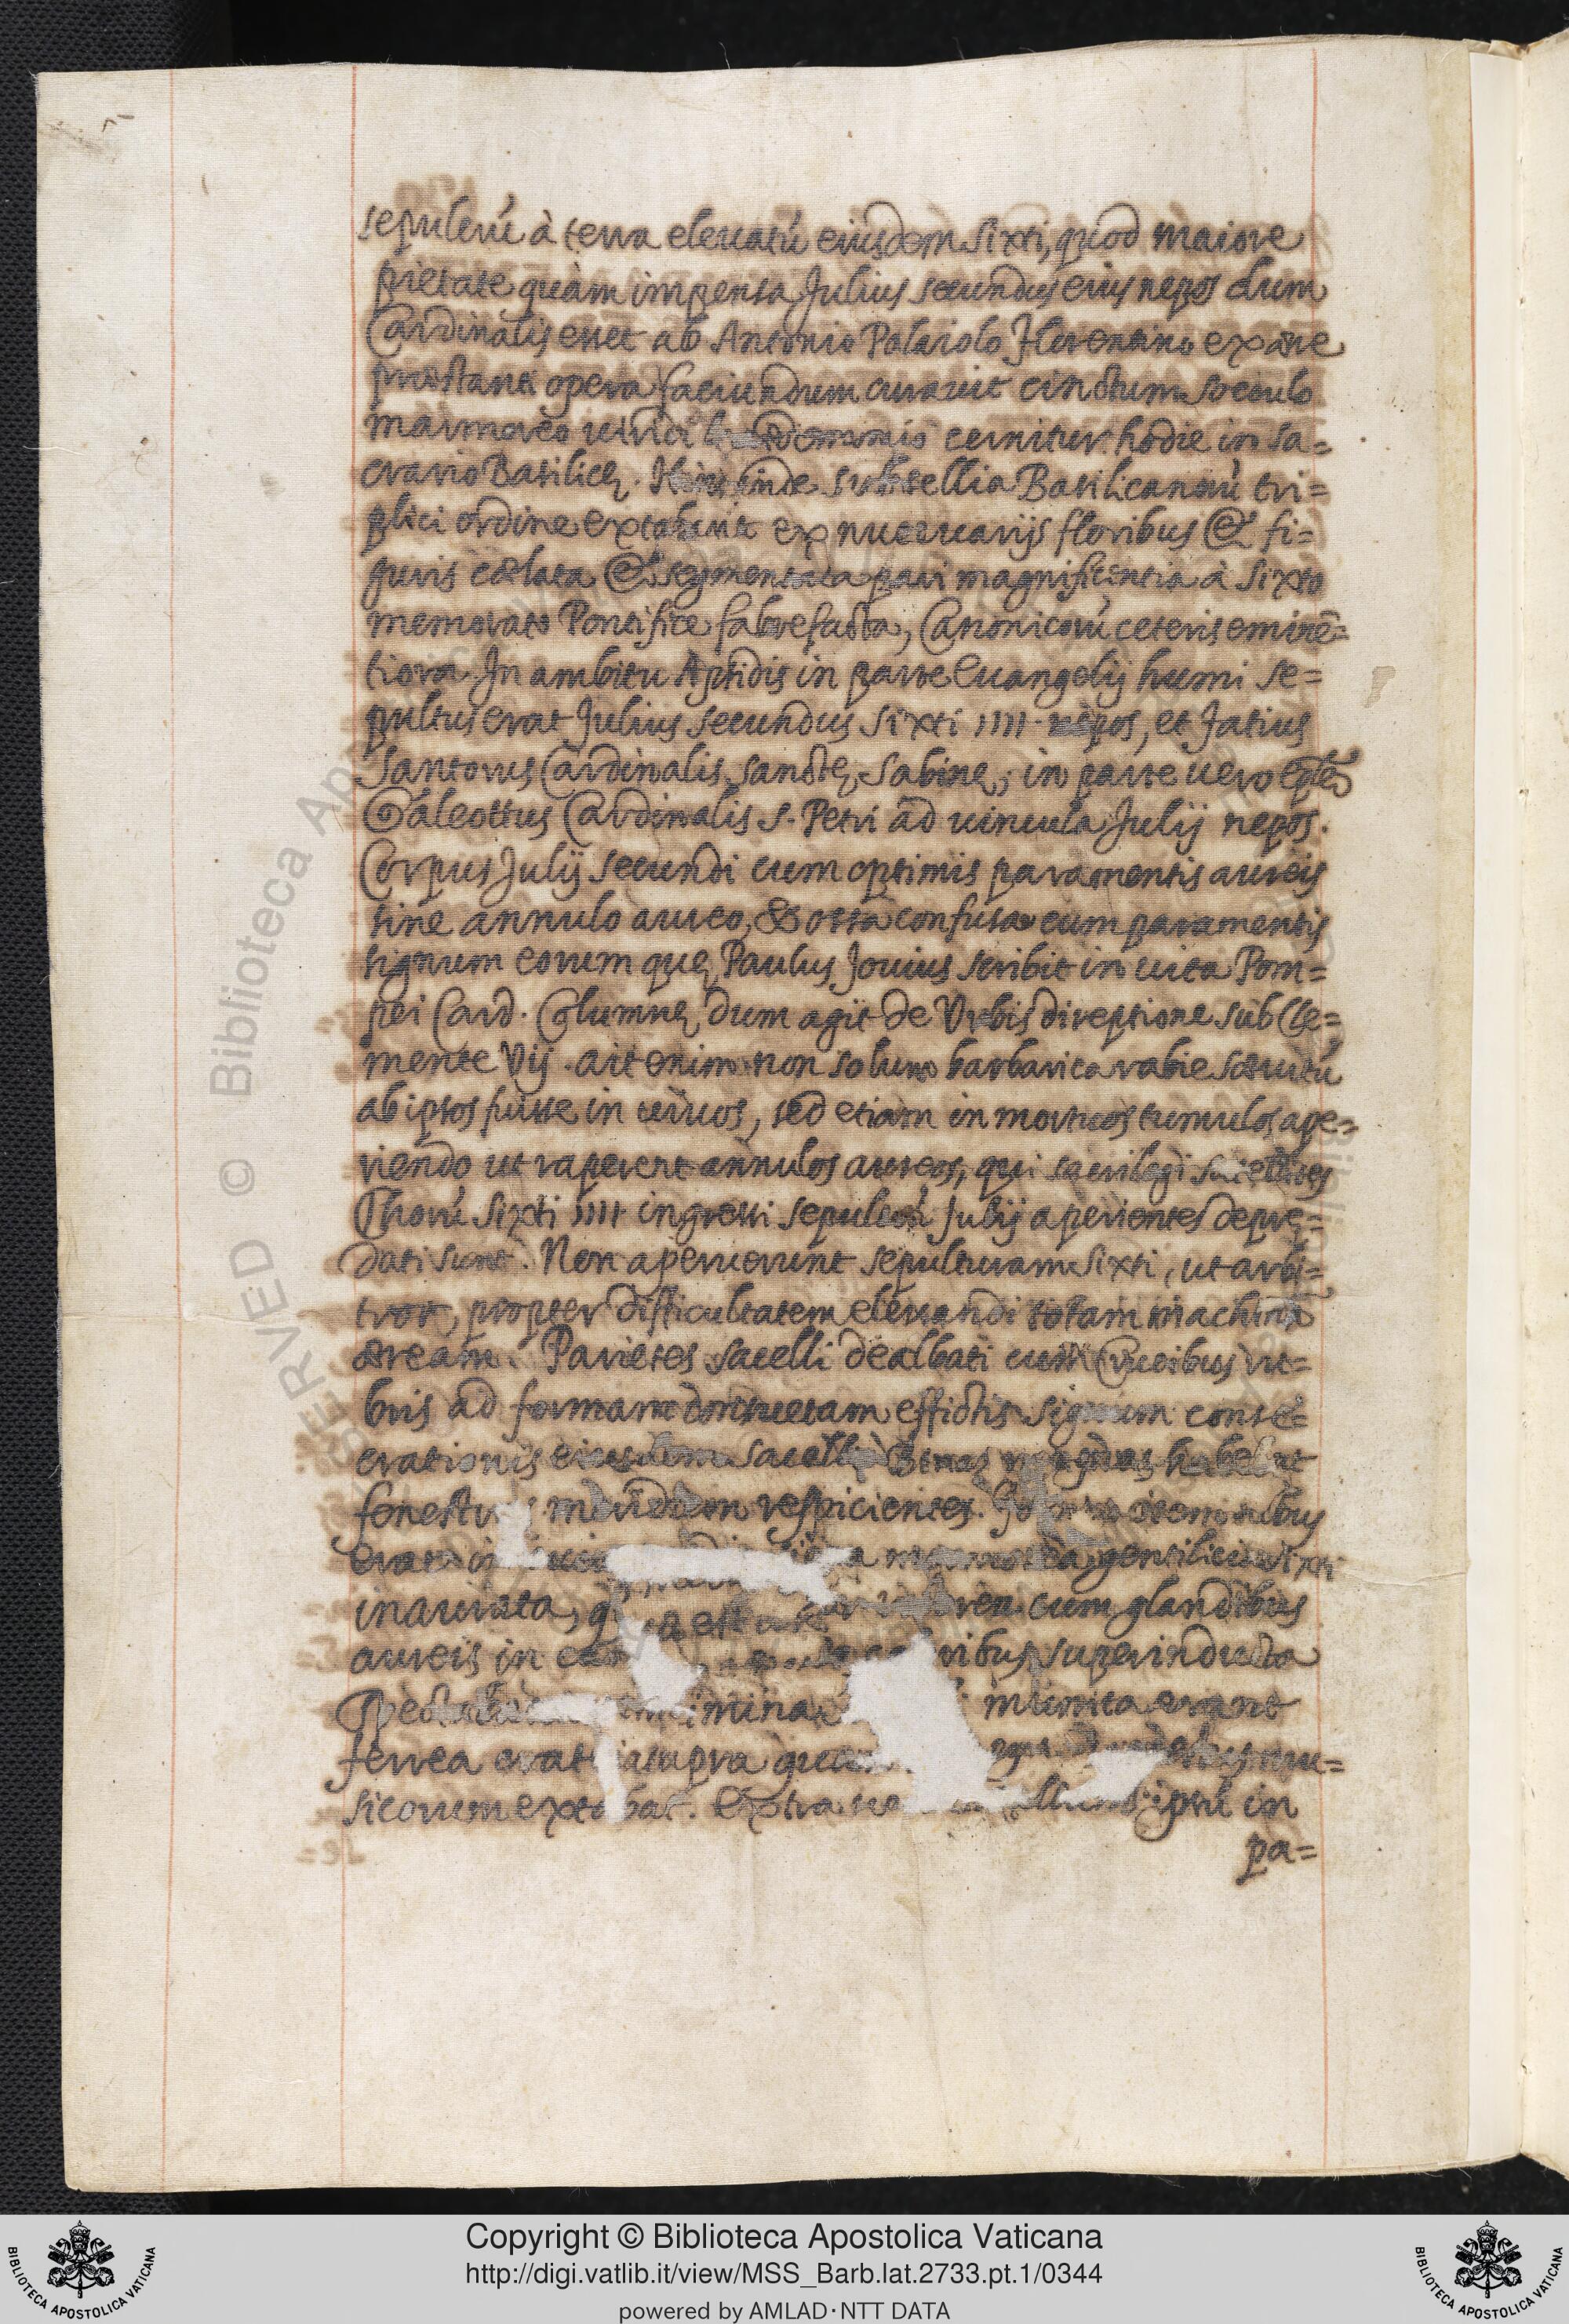 sepulcrũ à terra eleuatũ eiusdem Sixti, quod maiore
pietate quàm impensa Julius secundus eius nepos dum
Cardinalis esset ab Antonio Polaiolo Florentino ex ære
præstanti opera faciundum curauit cinctum
marmoreo uiridi cernitur hodie in sa=
crario Basilicę. Hinc inde subsellia Basilicanorũ tri=
plici ordine extabant ex nuce uarijs floribus & fi=
guris cælata & segmentata pari magnificentia à Sixto
memorato Pontifice fabrefacta, Canonicorũ ceteris eminẽ=
tiora. In ambitu Apsidis in parte Euangelij humi se=
pultus erat Julius secundus Sixti IIII nepos, et Fatius
Santorus Cardinalis Sanctę Sabinę; in parte uero
Galeottus Cardinalis S. Petri ad uincula Julij nepos.
Corpus Julij secundi cum optimis paramentis aureis
sine annulo aureo, & ossa confusa cum paramentis
signum eorum quę Paulus Jouius scribit in uita Pom=
pei Card. Columnę dum agit de Urbis direptione sub Cle=
mente Vij. ait enim non solum barbarica rabie sæuitũ
ab ipsos fuisse in uiuos, sed etiam in mortuos tumulos ape=
riendo ut raperent annulos aureos, qui sacrilegi
Chorũ Sixti IIII ingressi sepulcrũ Julij aperientes deprę=
dati sunt. Non aperuerunt sepulturam Sixti, ut arbi=
tror, propter difficultatem eleuandi totam machinã
æream. Parietes sacelli dealbati cum Crucibus ru=
bris ad formam consuetam effictis signum conse=
crationis eiusdem sacelli. Binas magnas habebat
fenestras meridiem respicientes.
gentilicia Sixti
inaurata, cum glandibus
aureis in superinducta
munita erant
ferrea crat supra mu=
sicorum extabat. Extra ipsũ in
pa=
Copyright © Biblioteca Apostolica Vaticana
http://digi.vatlib.it/view/MSS_Barb.lat.2733.pt.1/0344
powered by AMLAD·NTT DATA
BIBLIOTECA APOSTOLICA VATICANA
BIBLIOTECA APOSTOLICA VATICANA